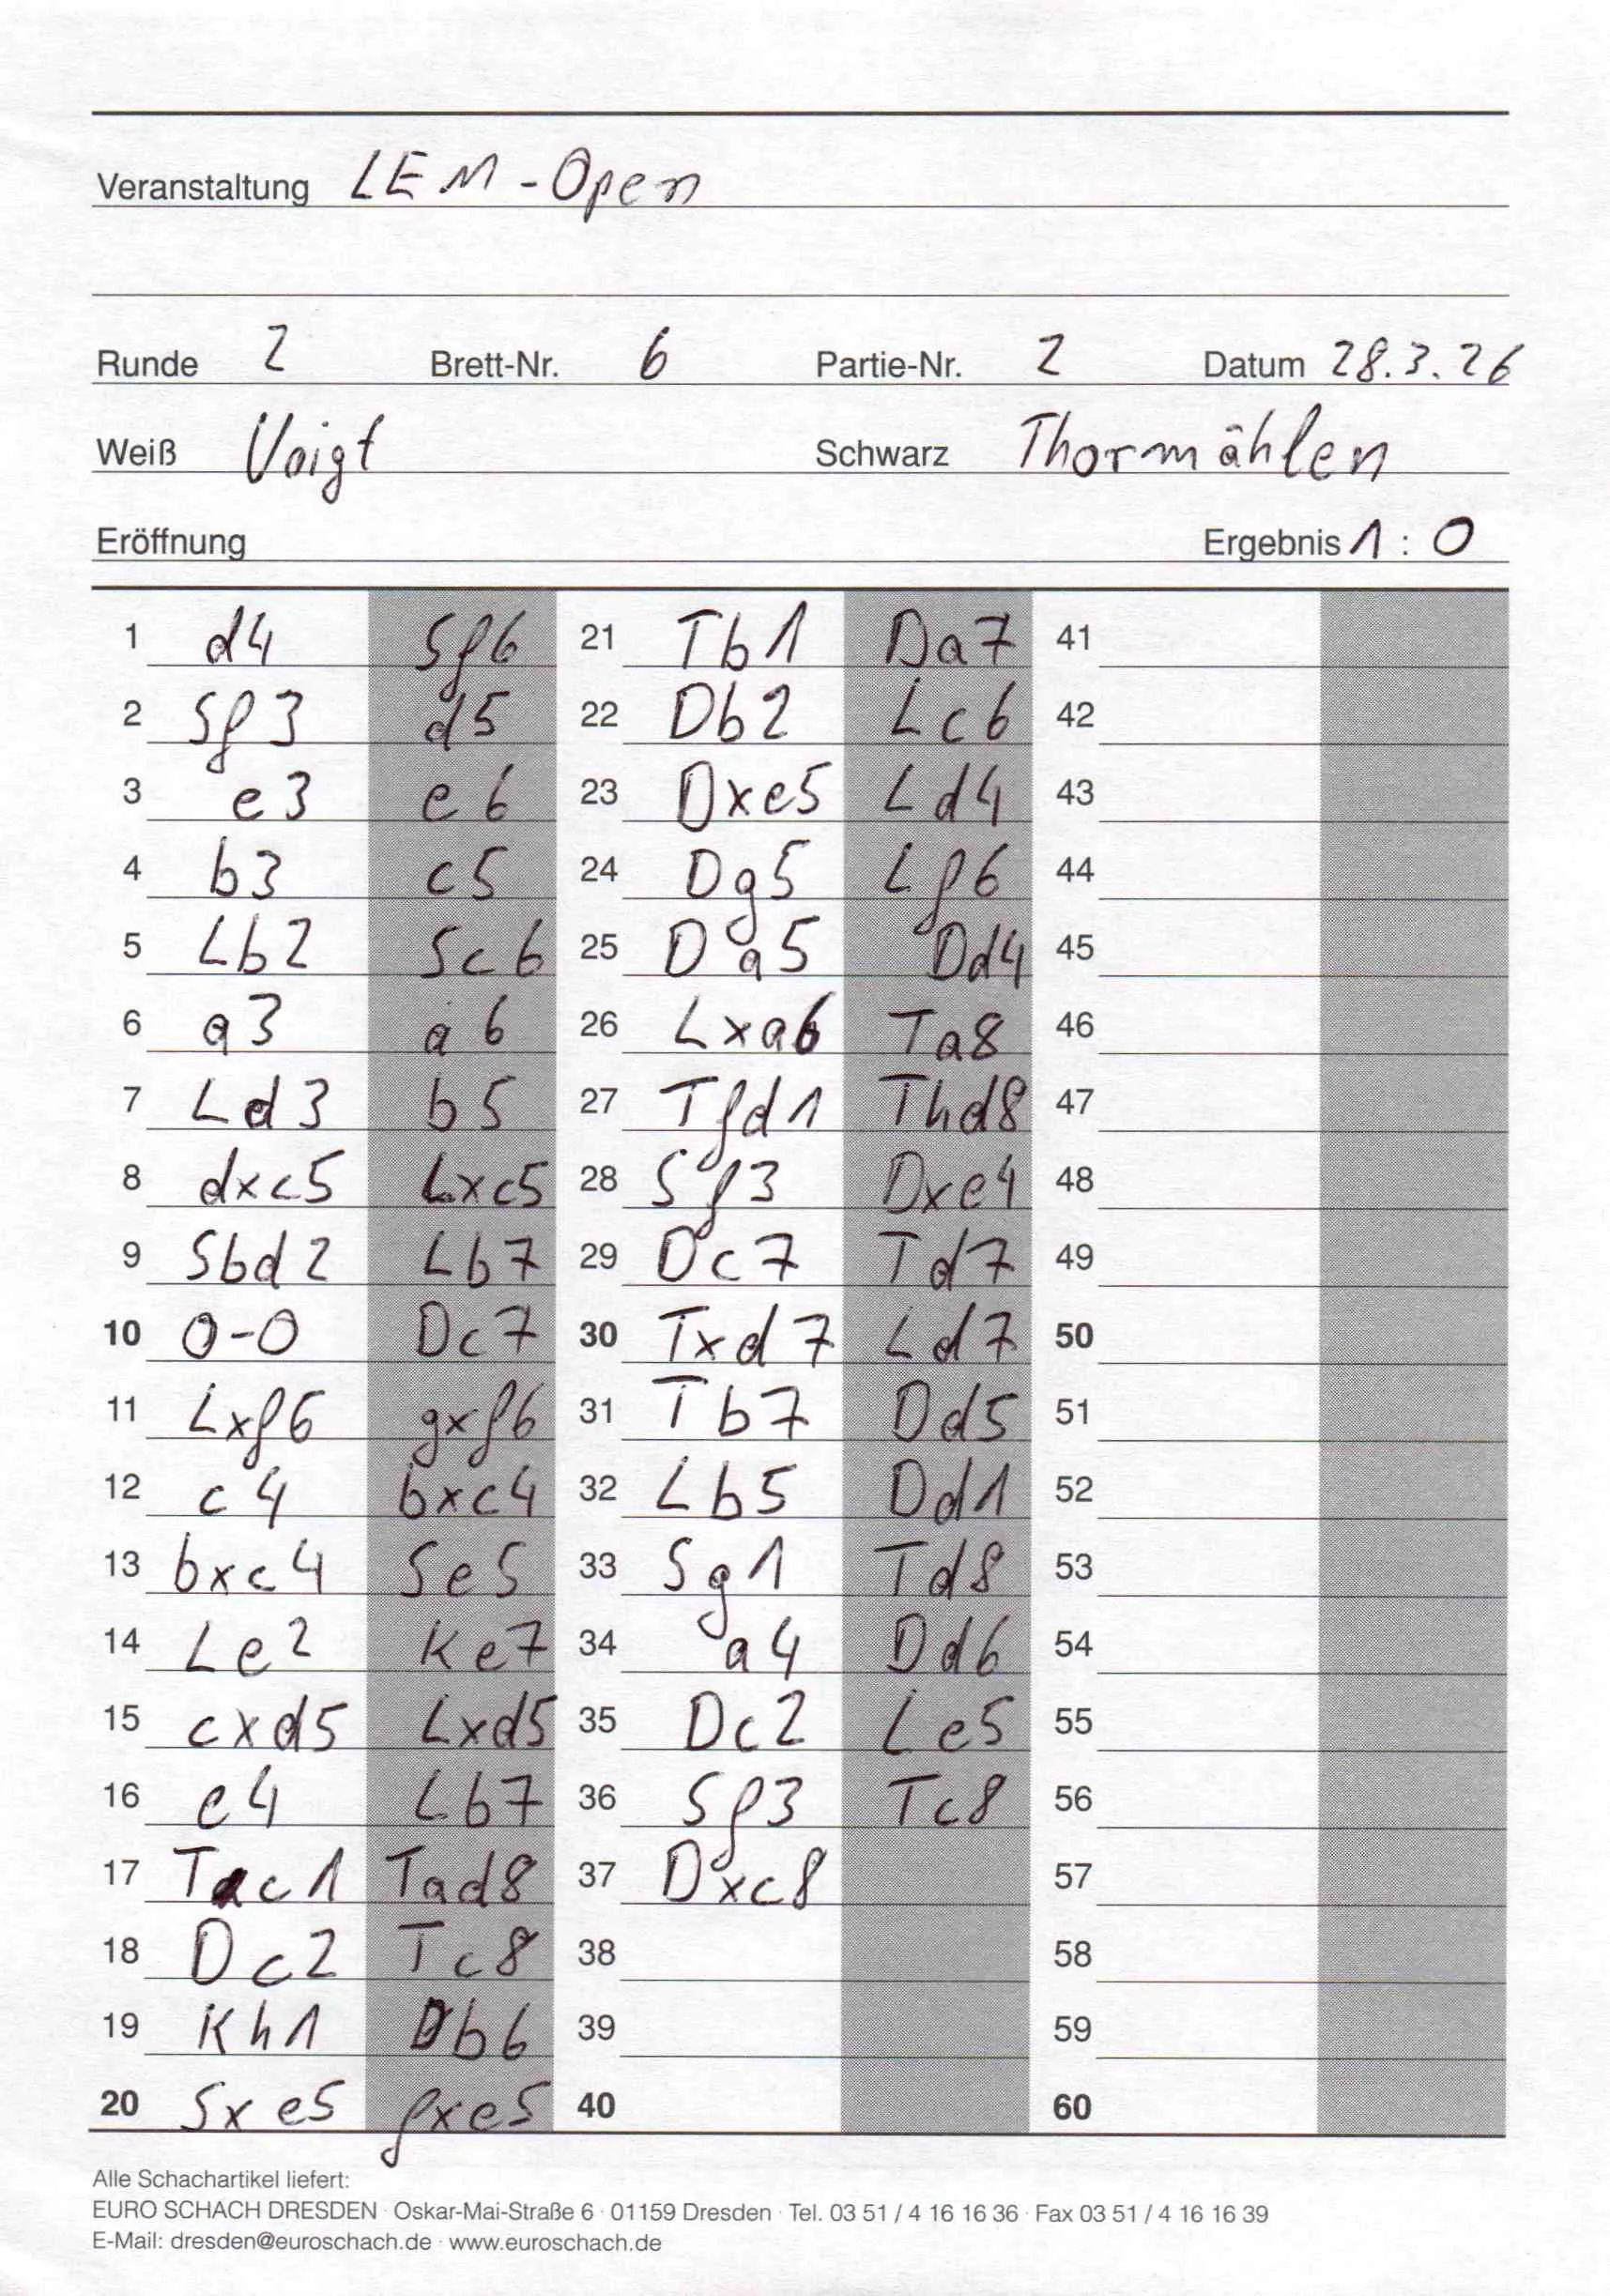 Veranstaltung LEM-Open
Runde 2 Brett-Nr. 6 Partie-Nr. 2 Datum 28.3.26
Weiß Voigt Schwarz Thormählen
Eröffnung Ergebnis 1 : 0
1 d4 Sf6 21 Tb1 Da7 41
2 Sf3 d5 22 Db2 Lc6 42
3 e3 e6 23 Dxe5 Ld4 43
4 b3 c5 24 Dg5 Lf6 44
5 Lb2 Sc6 25 Da5 Dd4 45
6 a3 a6 26 Lxa6 Ta8 46
7 Ld3 b5 27 Tfd1 Thd8 47
8 dxc5 Lxc5 28 Sf3 Dxe4 48
9 Sbd2 Lb7 29 Dc7 Td7 49
10 0-0 Dc7 30 Txd7 Ld7 50
11 Lxf6 gxf6 31 Tb7 Dd5 51
12 c4 bxc4 32 Lb5 Dd1 52
13 bxc4 Se5 33 Sg1 Td8 53
14 Le2 Ke7 34 a4 Dd6 54
15 cxd5 Lxd5 35 Dc2 Le5 55
16 e4 Lb7 36 Sf3 Tc8 56
17 Tac1 Tad8 37 Dxc8 57
18 Dc2 Tc8 38 58
19 Kh1 Db6 39 59
20 Sxe5 fxe5 40 60
Alle Schachartikel liefert:
EURO SCHACH DRESDEN · Oskar-Mai-Straße 6 · 01159 Dresden · Tel. 03 51 / 4 16 16 36 · Fax 03 51 / 4 16 16 39
E-Mail: dresden@euroschach.de · www.euroschach.de